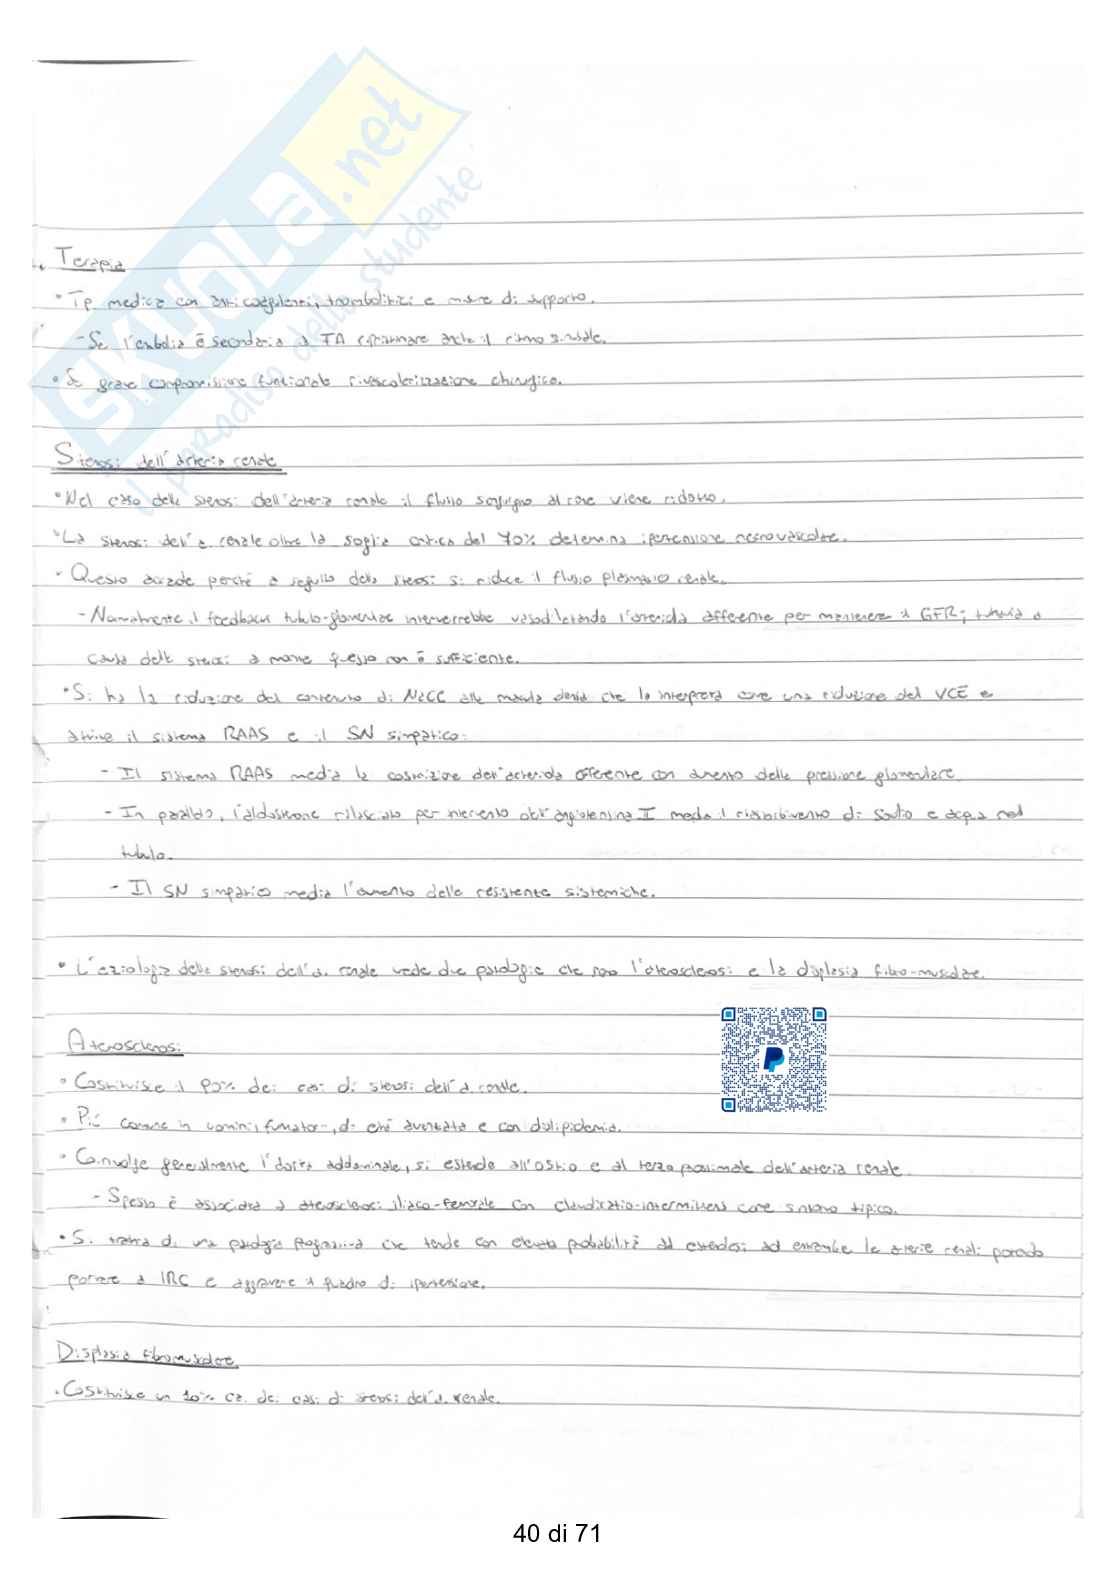 SKUOLA.net
il paradiso dello studente
Terapia
• Tp medica con anticoagulanti, trombolitici e misure di supporto.
- Se l'embolia è secondaria a FA ripristinare anche il ritmo sinusale.
• Se grave compromissione funzionale rivascolarizzazione chirurgica.
Stenosi dell'arteria renale
• Nel caso della stenosi dell'arteria renale il flusso sanguigno al rene viene ridotto.
• La stenosi dell'a renale oltre la soglia critica del 70% determina ipertensione nefrovascolare.
• Questo accade perché a seguito della stenosi si riduce il flusso plasmatico renale.
- Normalmente il feedback tubulo-glomerulare interverrebbe vasodilatando l'arteriola afferente per mantenere il GFR; tuttavia a
causa della stenosi a monte questo non è sufficiente.
• Si ha la riduzione del contenuto di NaCl alla macula densa che lo interpreta come una riduzione del VCE e
attiva il sistema RAAS e il SN simpatico:
- Il sistema RAAS media la costrizione dell'arteriola efferente con aumento della pressione glomerulare
- In parallelo, l'aldosterone rilasciato per intervento dell'angiotensina II media il riassorbimento di sodio e acqua nel
tubulo.
- Il SN simpatico media l'aumento delle resistenze sistemiche.
• L'eziologia della stenosi dell'a. renale vede due patologie che sono l'aterosclerosi e la displasia fibro-muscolare.
Aterosclerosi
• Costituisce il 90% dei casi di stenosi dell'a renale.
• Più comune in uomini, fumatori, di età avanzata e con dislipidemia.
• Coinvolge generalmente l'aorta addominale, si estende all'ostio e al terzo prossimale dell'arteria renale
- Spesso è associata a aterosclerosi iliaco-femorale con claudicatio-intermittens come sintomo tipico.
• Si tratta di una patologia progressiva che tende con elevata probabilità ad estendersi ad entrambe le arterie renali potendo
portare a IRC e aggravare il quadro di ipertensione.
Displasia fibromuscolare
• Costituisce un 10% ca. dei casi di stenosi dell'a. renale.
40 di 71